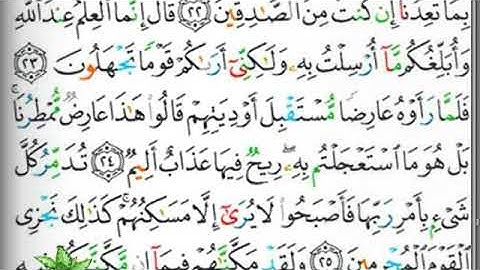 بِمَا تَعِدُنَآ إِن كُنتَ مِنَ ٱلصَّـٰدِقِينَ ﴿٢٢﴾ قَالَ إِنَّمَا ٱلْعِلْمُ عِندَ ٱللَّهِ
وَأُبَلِّغُكُم مَّآ أُرْسِلْتُ بِهِۦ وَلَـٰكِنِّىٓ أَرَىٰكُمْ قَوْمًا تَجْهَلُونَ ﴿٢٣﴾
فَلَمَّا رَأَوْهُ عَارِضًا مُّسْتَقْبِلَ أَوْدِيَتِهِمْ قَالُوا۟ هَـٰذَا عَارِضٌ مُّمْطِرُنَا ۚ
بَلْ هُوَ مَا ٱسْتَعْجَلْتُم بِهِۦ ۖ رِيحٌ فِيهَا عَذَابٌ أَلِيمٌ ﴿٢٤﴾ تُدَمِّرُ كُلَّ
شَىْءٍۭ بِأَمْرِ رَبِّهَا فَأَصْبَحُوا۟ لَا يُرَىٰٓ إِلَّا مَسَـٰكِنُهُمْ ۚ كَذَٰلِكَ نَجْزِى
ٱلْقَوْمَ ٱلْمُجْرِمِينَ ﴿٢٥﴾ وَلَقَدْ مَكَّنَّـٰهُمْ فِيمَآ إِن مَّكَّنَّـٰكُمْ فِيهِ